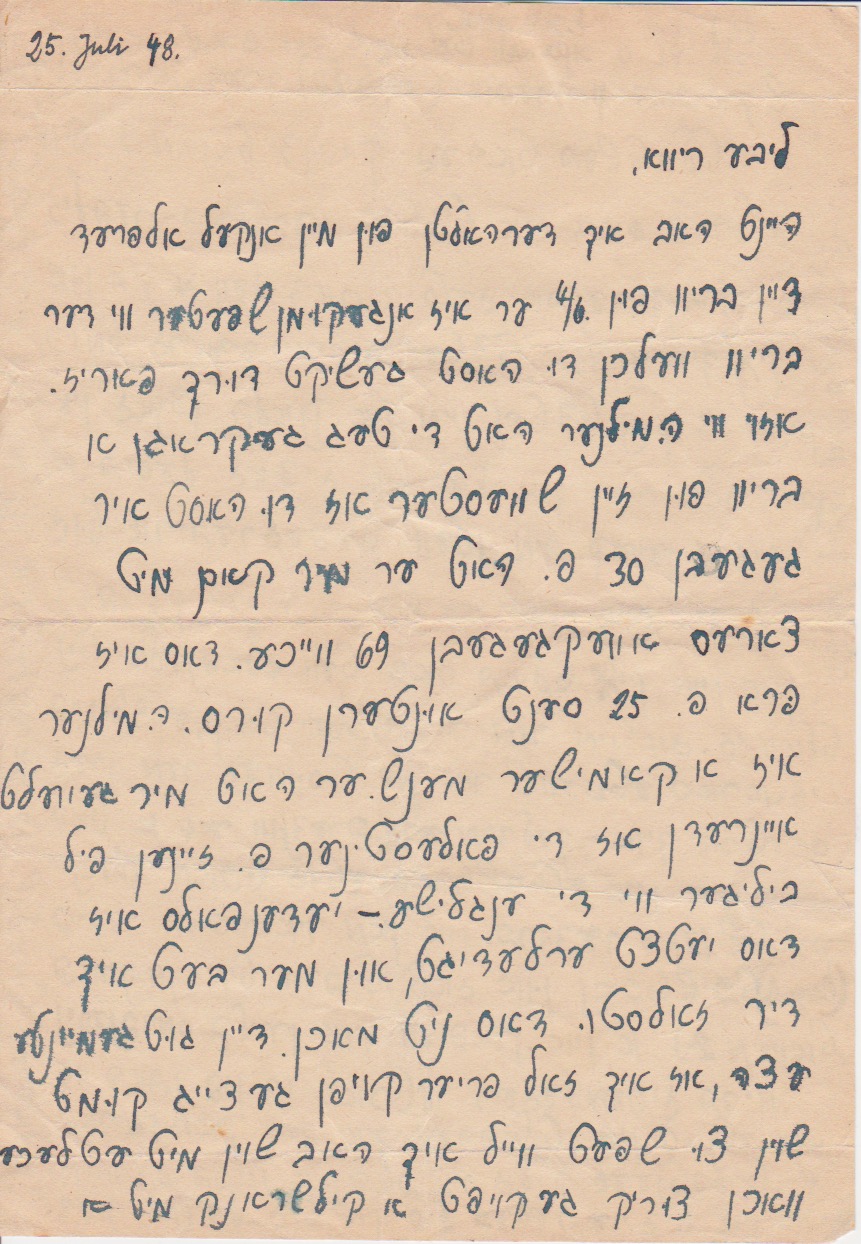 25. Juli 48.
ליבע ריווא,
היינט האב איך דערהאלטן פון מיין אנקעל אלפרעד
דיין בריוו פון 4/6. ער איז אנגעקומן שפעטער ווי דער
בריוו וועלכן דו האסט געשיקט דורך פאריז.
אזוי ווי ה. מילנער האט די טעג געקראגן א
בריוו פון זיין שוועסטער אז דו האסט איר
געגעבן 30 פ. האט ער מיר קאם מיט
צארעס אוועקגעגעבן 69 ווייכע. דאס איז
פרא פ. 25 סענט אונטערן קורס. ה. מילנער
איז א קאמישער מענש. ער האט מיר געוועלט
איינרעדן אז די פאלעסטינער פ. זיינען פיל
ביליגער ווי די ענגלישע. – יעדענפאלס איז
דאס יעטצט ערלעדיגט, און מער בעט איך
דיך זאלסטו דאס ניט מאכן. דיין גוט געמיינטע
עצה, אז איך זאל פריער קויפן געצייג קומט
שוין צו שפעט ווייל איך האב שוין מיט עטלעכע
וואכן צוריק געקויפט א קילשראנק מיט א